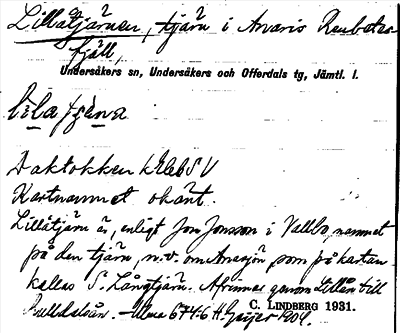 Lillåtjärnen, tjärn i Anaris Renbetes-
fjäll,
Undersåkers sn, Undersåkers och Offerdals tg, Jämtl. l.
lilatjäna
Daktokken
Kartnamnet okänt.
Lillåtjärn är, enligt Jon Jonsson i Vallbo, namnet
på den tjärn, n.v. om Anasjön, som på kartan
kallas S. Långtjärn. Afrinner genom Lillån till
Bulldalsån. – Ulma 674:6 H. Geijer 1904.
C. LINDBERG 1931.